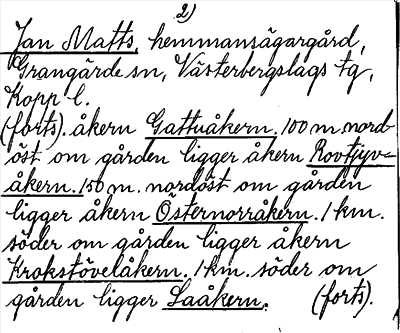 2)
Jan Matts, hemmansägargård,
Grangärde sn, Västerbergslags tg,
Kopp l.
(forts). åkern Gattuåkern. 100 m. nord-
öst om gården ligger åkern Rovtjyv-
åkern. 150 m. nordöst om gården
ligger åkern Östernorråkern. 1 km.
söder om gården ligger åkern
Krokstövelåkern. 1 km. söder om
gården ligger Laåkern. (forts).